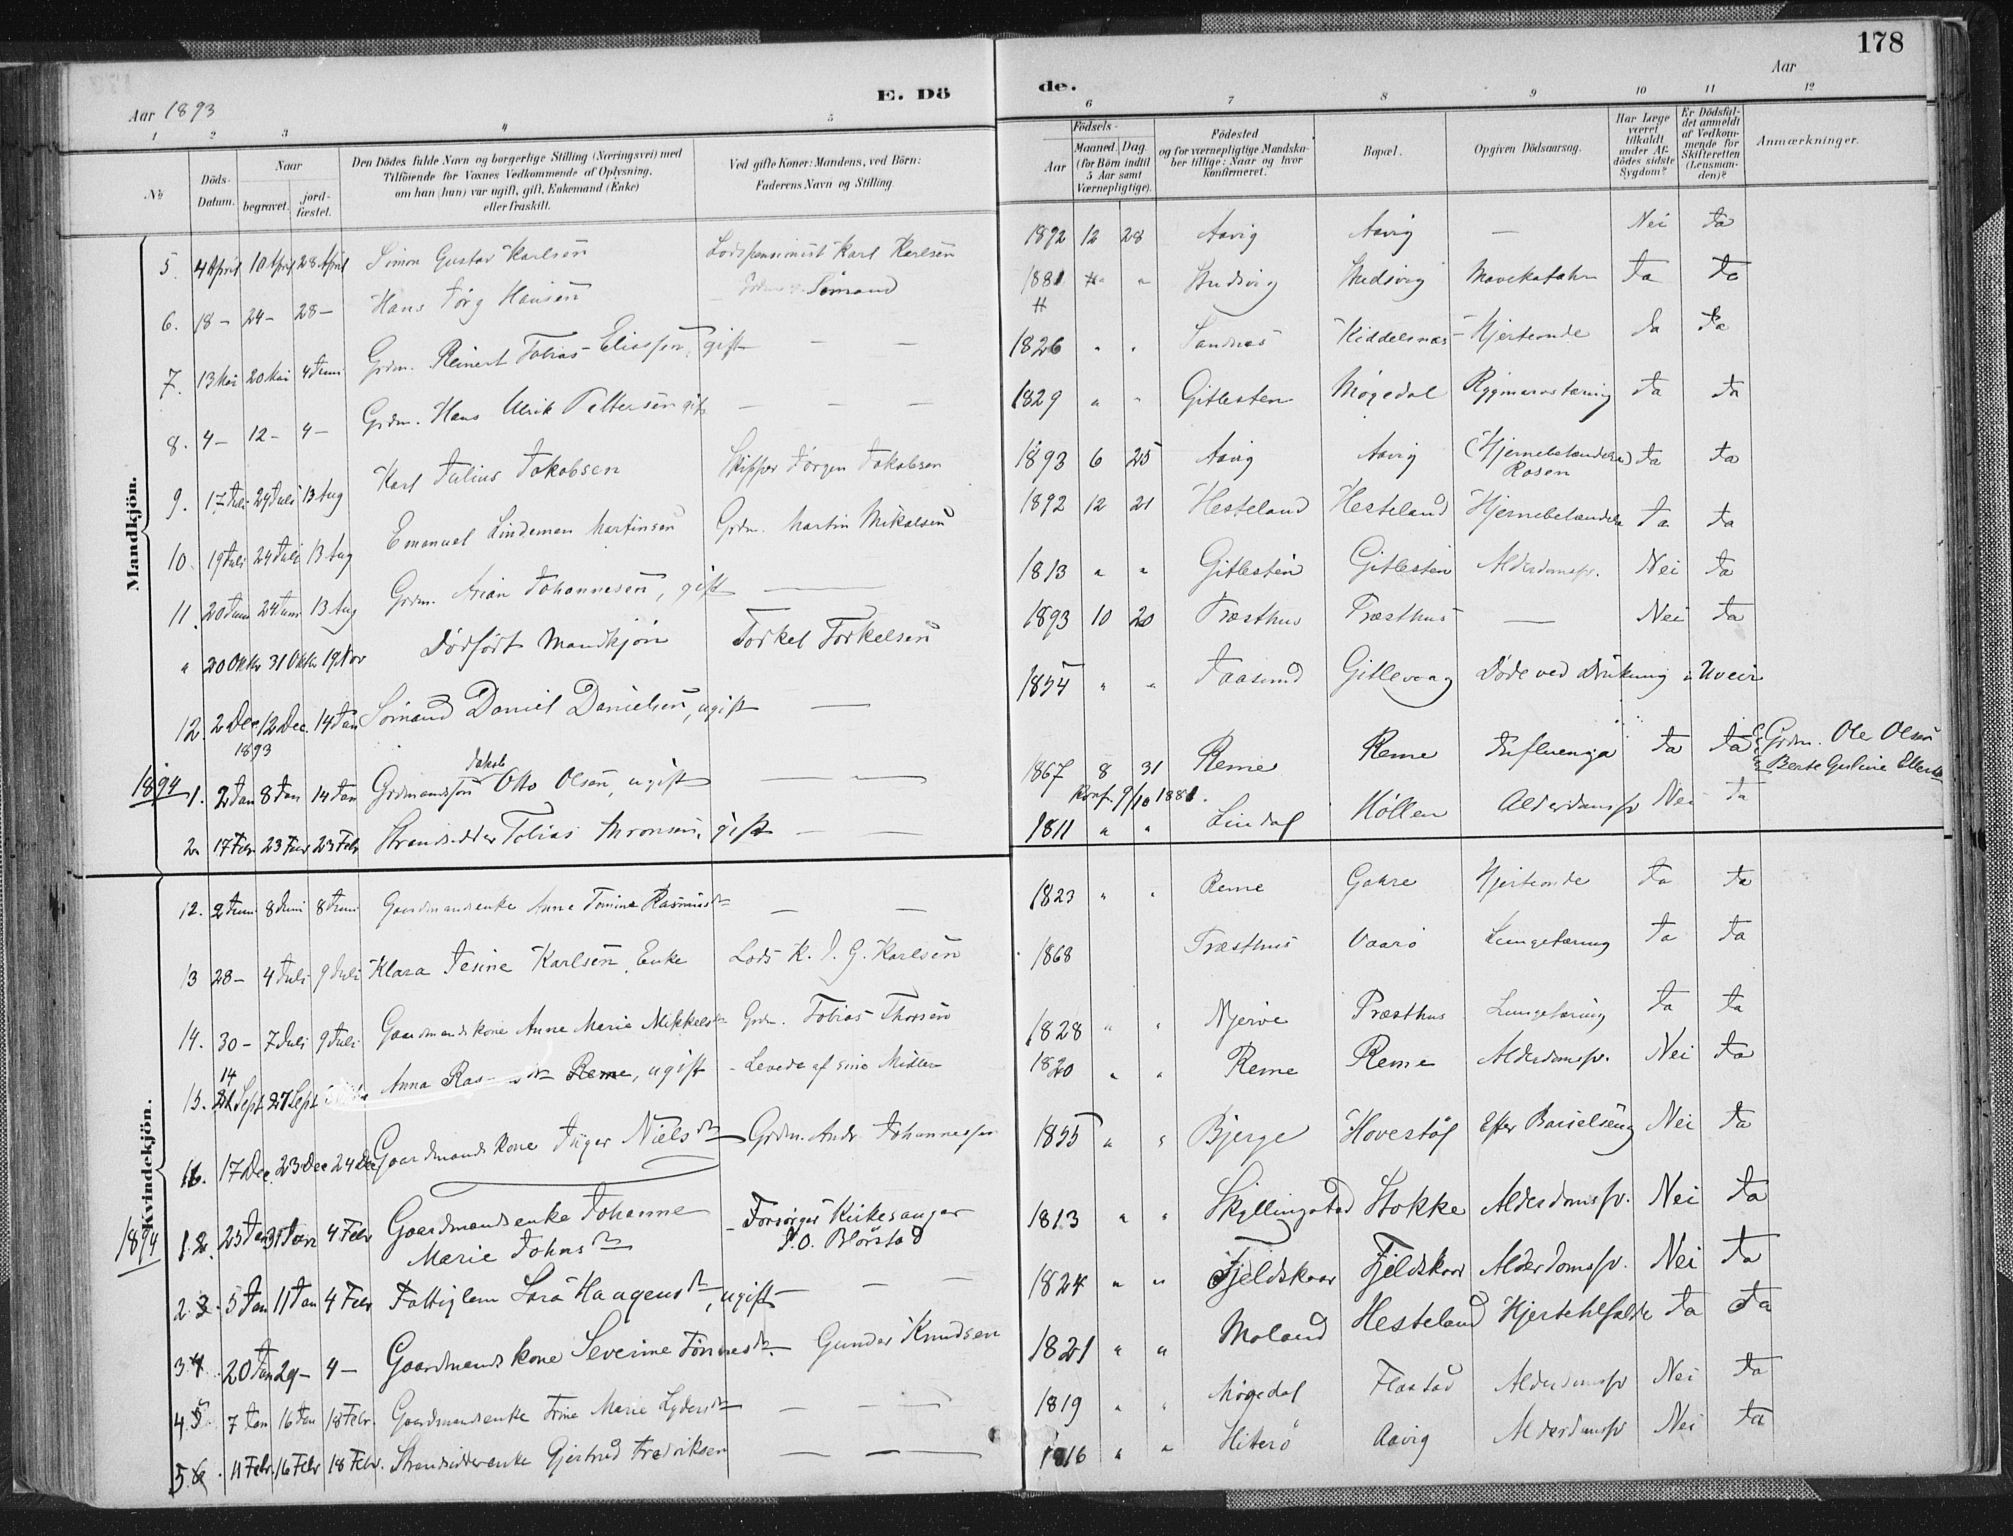 178
Aar 1893
E. Dö
de.
Aar
1 2 3 4 5 6 7 8 9 10 11 12
№
Döds-Datum.
Naar
begravet.
jord-fæstet.
Den Dödes fulde Navn og borgerlige Stilling (Næringsvei) med
Tilföiende for Voxnes Vedkommende af Oplysning,
om han (hun) var ugift, gift, Enkemand (Enke)
eller fraskilt.
Ved gifte Koner: Mandens, ved Börn:
Faderens Navn og Stilling.
Födsels-
Aar
Maaned. Dag.
(for Börn indtil
5 Aar samt
Værnepligtige).
Födested
og for værnepligtige Mandska-
ber tillige: Naar og hvor
konfirmeret.
Bopæl.
Opgiven Dödsaarsag.
Har Læge
været
tilkaldt
under Af-
dödes sidste
Sygdom?
Er Dödsfal-
det anmeldt
af Vedkom-
mende for
Skifteretten
(Lensman-
den)?
Anmærkninger.
Mandkjön.
5. 4 April 10 April 28 April Simon Gustav Karlsen Lodspensionist Karl Karlsen 1892 12 28 Aavig Aavig — Nei Ja
6. 18 – 24 – 28 – Hans Jörg Hansen Sömand 1881 " " Ja Ja
7. 13 Mai 20 Mai 4 Juni Grdm. Reinert Tobias Eliassen, gift — — 1826 " " Sandnæs Kiddelsnæs Hjerteonde Ja Ja
8. 4 – 12 – 4 – Grdm. Hans Ulrik Pettersen gift — — — 1829 " " Gitlesten Mögedal Rygmarvstæring Ja Ja
9. 17 Juli 24 Juli 13 Aug Karl Julius Jakobsen Skipper Jörgen Jakobsen 1893 6 25 Aavig Aavig (Hjernebetændelse) Rosen Ja Ja
10. 19 Juli 24 Juli 13 Aug Emanuel Lindeman Martinsen Grdm. Martin Mikalsen 1892 12 21 Hesteland Hesteland Hjernebetændelse Ja Ja
11. 20 Juni 24 Juni 13 Aug Grdm. Arian Johannesen, gift — 1813 " " Gitlesten Gitlesten Alderdomssv. Nei Ja
" 20 Oktbr 31 Oktbr 19 Nov Dödfödt Mandkjön Torkel Torkelsen 1893 10 20 Præsthus Præsthus — Nei Ja
12. 2 Dec 12 Dec. 14 Jan Sömand Daniel Danielsen, ugift — 1854 " " Jaasund Gitlevaag Döde ved Drukning i Uveir
1893
1894 1. 2 Jan 8 Jan 14 Jan Grdmandssön Jakob Otto Olsen, ugift — — 1867 8 31 Reme Reme Influenza Ja Ja Grdm. Ole Olsen
Konf. 9/10 1881. Berte Gustine
2. 17 Febr 23 Febr 23 Febr Strandsidder Tobias Aronsen, gift — — 1811 " " Lindal Höllen Alderdomssv Nei Ja
Kvindekjön.
12. 2 Juni 8 Juni 8 Juni Gaardmandsenke Anne Tomine Rasmusdtr — — 1823 " " Reme Gahre Hjerteonde Ja Ja
13 28 – 4 Juli 9 Juli Klara Jesine Karlsen, Enke Lods K. J. G. Karlsen 1868 Præsthus Vaarö Lungetæring Ja Ja
14. 30 – 7 Juli 9 Juli Gaardmandskone Anne Marie Mikkelsdtr Grdm. Tobias Thorsen 1828 " " Njerve Præsthus Lungetæring Ja Ja
15. 14 21 Sept 27 Sept Anna Ras dtr Reme, ugift – Levede af sine Midler 1820 " " Reme Reme Alderdomssv. Nei Ja
16. 17 Dec. 23 Dec 24 Dec Gaardmandskone Inger Nielsdtr – Grdm. Andr. Johannessen 1855 " " Bjerge Hovestöl Efter Barselseng Nei Ja
1894 1. 2. 25 Jan 31 Jan 4 Febr Gaardmandsenke Johanne – Forsörget Kirkesanger 1813 " " Skyllingstad Stokke Alderdomssv. Nei Ja
Marie Johnsdtr P. O. Blörstad
2. 3. 5 Jan 11 Jan 4 Febr Fattiglem Sara Haagensdtr, ugift — — 1824 " " Fjeldskaar Fjeldskaar Alderdomssv. Nei Ja
3 4. 20 Jan 29 – 4 – Gaardmandskone Severine Tönnesdtr. Gunder Knudsen 1821 " " Moland Hesteland Hjertetilfælde Ja Ja
4. 5. 7 Jan 16 Jan 18 Febr. Gaardmandsenke Trine Marie Lydersdtr — — 1819 " " Mögedal Flaatad Alderdomssv Nei Ja
5. 6. 11 Febr. 16 Febr 18 Febr. Strandsidderenke Gjertrud Fredriksen — — 1816 " " Hiterö Aavig Alderdomssv Nei Ja